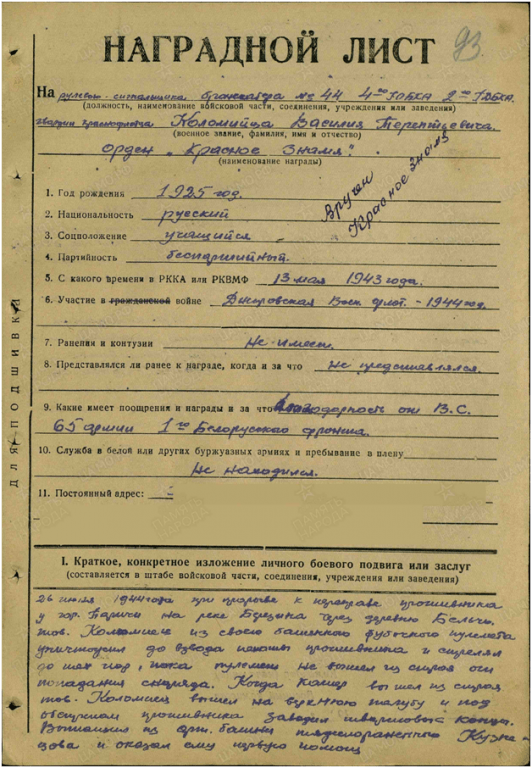 93.
НАГРАДНОЙ ЛИСТ
На рулевого-сигнальщика бронекатера № 44 4го 2ой
(должность, наименование войсковой части, соединения, учреждения или заведения)
гвардии краснофлотца Коломийца Василия Терентьевича.
(военное звание, фамилия, имя и отчество)
Орден „Красное Знамя".
(наименование награды)
Вручен
Красное Знамя
1. Год рождения 1925 год.
2. Национальность русский
3. Соцположение учащийся
4. Партийность беспартийный.
5. С какого времени в РККА или РКВМФ 13 мая 1943 года.
6. Участие в гражданской войне Днепровская Воен. флот. - 1944 год.
7. Ранения и контузии Не имеет.
8. Представлялся ли ранее к награде, когда и за что Не представлялся.
9. Какие имеет поощрения и награды и за что Благодарность от В.С.
65 армии 1го Белорусского фронта.
10. Служба в белой или других буржуазных армиях и пребывание в плену
Не находился.
11. Постоянный адрес: -
ДЛЯ ПОДШИВКИ
I. Краткое, конкретное изложение личного боевого подвига или заслуг
(составляется в штабе войсковой части, соединения, учреждения или заведения)
26 июня 1944 года при прорыве к переправе противника
у гор. Паричи на реке Березина через деревню Бельчо
тов. Коломиец из своего башенного пулемета
уничтожил до взвода пехоты противника и стрелял
до тех пор, пока пулемет не вышел из строя от
попадания снаряда. Когда катер вышел из строя
тов. Коломиец вышел на верхнюю палубу и под
обстрелом противника заводил швартовые концы.
Вытащил из арт. башни тяжелораненного Кузне-
цова и оказал ему первую помощь